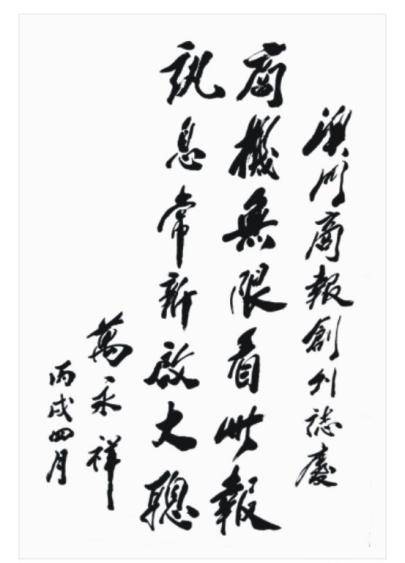 澳門商報創刊誌慶
商機無限看此報
訊息常新啟大聰
萬永祥
丙戌四月